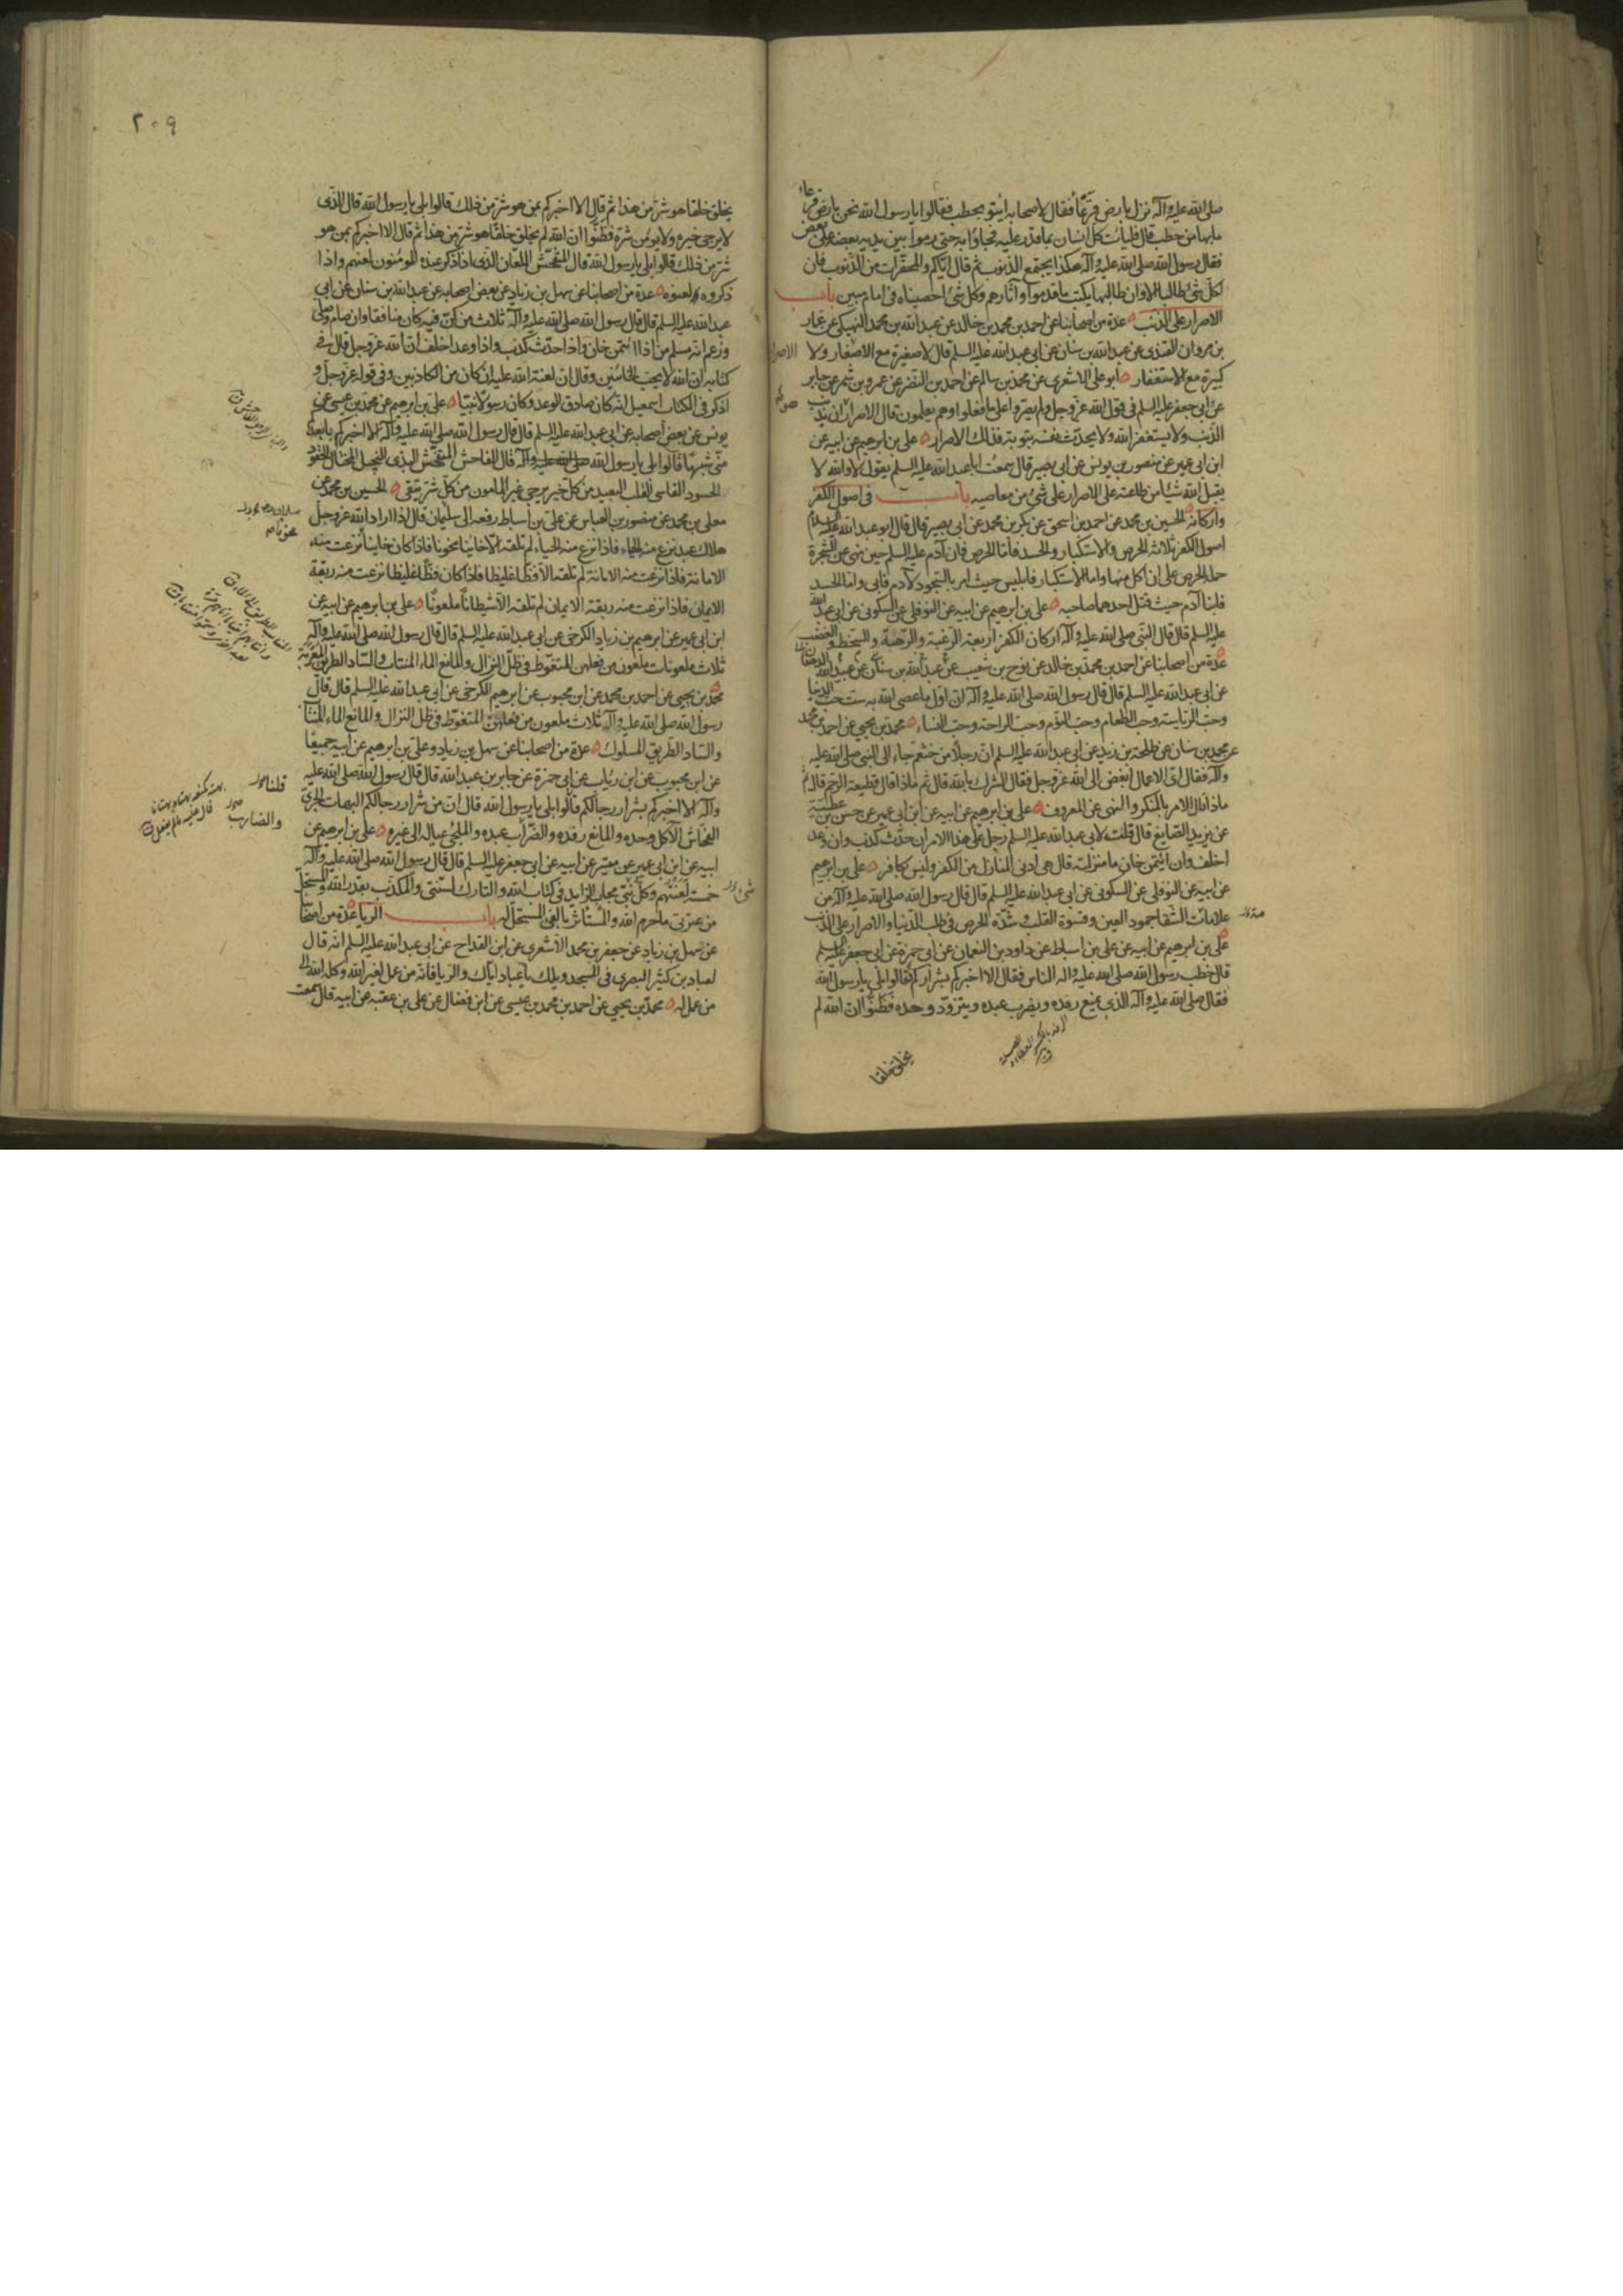 صلى الله عليه وآله نزل بارض قرعاء فقال لاصحابه ايتو بحطب فقالوا يا رسول الله نحن بارض قرعاء
ما بها من حطب قال فليأت كل انسان بما قدر عليه فجاؤا به حتى رموا بين يديه بعضه على بعض
فقال رسول الله صلى الله عليه وآله هكذا يجتمع الذنوب ثم قال اياكم والمحقرات من الذنوب فان
لكل شئ طالبا الا وان طالبها يكتب ما قدموا وآثارهم وكل شئ احصيناه في امام مبين باب
الاصرار على الذنب عدة من اصحابنا عن احمد بن محمد بن خالد عن عبد الله بن محمد النهيكى عن عمار
بن مروان القندى عن عبد الله بن سنان عن ابى عبد الله عليه السلم قال لا صغيرة مع الاصغار ولا
الاصرار
كبيرة مع الاستغفار ابو على الاشعرى عن محمد بن سالم عن احمد بن النضر عن عمرو بن شمر عن جابر
عن ابى جعفر عليه السلم فى قول الله عز وجل ولم يصروا على ما فعلوا وهم يعلمون قال الاصرار ان يذنب
الذنب ولا يستغفر الله ولا يحدث نفسه بتوبة فذلك الاصرار على بن ابرهيم عن ابيه عن
ابن ابى عمير عن منصور بن يونس عن ابى بصير قال سمعت ابا عبد الله عليه السلم يقول لا والله لا
يقبل الله شيئا من طاعته على الاصرار على شئ من معاصيه باب فى اصول الكفر
واركانه الحسين بن محمد عن احمد بن اسحق عن بكر بن محمد عن ابى بصير قال قال ابو عبد الله عليه السلم
اصول الكفر ثلاثة الحرص والاستكبار والحسد فاما الحرص فان آدم عليه السلم حين نهى عن الشجرة
حمله الحرص على ان اكل منها واما الاستكبار فابليس حيث امر بالسجود لآدم فابى واما الحسد
فابنا آدم حيث قتل احدهما صاحبه على بن ابرهيم عن ابيه عن النوفلى عن السكونى عن ابى عبد الله
عليه السلم قال قال النبى صلى الله عليه وآله اركان الكفر اربعة الرغبة والرهبة والسخط والغضب
عدة من اصحابنا عن احمد بن محمد بن خالد عن نوح بن شعيب عن عبد الله بن سنان عن عبيد الله الدهقان
عن ابى عبد الله عليه السلم قال قال رسول الله صلى الله عليه وآله ان اول ما عصى الله به ست حب الدنيا
وحب الرئاسة وحب الطعام وحب النوم وحب الراحة وحب النساء محمد بن يحيى عن احمد بن محمد
عن محمد بن سنان عن طلحة بن زيد عن ابى عبد الله عليه السلم ان رجلا من خثعم جاء الى النبى صلى الله عليه
وآله فقال اى الاعمال ابغض الى الله عز وجل فقال الشرك بالله قال ثم ماذا قال قطيعة الرحم قال ثم
ماذا قال الامر بالمنكر والنهى عن المعروف على بن ابرهيم عن ابيه عن ابن ابى عمير عن حسن بن عطية
عن يزيد الصايغ قال قلت لابى عبد الله عليه السلم رجل على هذا الامر ان حدث كذب وان وعد
اخلف وان ايتمن خان ما منزلته قال هى ادنى المنازل من الكفر وليس بكافر على بن ابرهيم
عن ابيه عن النوفلى عن السكونى عن ابى عبد الله عليه السلم قال قال رسول الله صلى الله عليه وآله من
علامات الشقا جمود العين وقسوة القلب وشدة الحرص فى طلب الدنيا والاصرار على الذنب
على بن ابرهيم عن ابيه عن على بن اسباط عن داود بن النعمان عن ابى حمزة عن ابى جعفر عليه السلم
قال خطب رسول الله صلى الله عليه وآله الناس فقال الا اخبركم بشراركم قالوا بلى يا رسول الله
فقال صلى الله عليه وآله الذى يمنع رفده ويضرب عبده ويتزود وحده فظنوا ان الله لم
يخلق خلقا
٢٠٩
يخلق خلقا هو شر من هذا ثم قال الا اخبركم بمن هو شر من ذلك قالوا بلى يا رسول الله قال الذى
لا يرجى خيره ولا يومن شره فظنوا ان الله لم يخلق خلقا هو شر من هذا ثم قال الا اخبركم بمن هو
شر من ذلك قالوا بلى يا رسول الله قال المتفحش اللعان الذى اذا ذكر عنده المومنون لعنهم واذا
ذكروه لعنوه عدة من اصحابنا عن سهل بن زياد عن بعض اصحابه عن عبد الله بن سنان عن ابى
عبد الله عليه السلم قال قال رسول الله صلى الله عليه وآله ثلاث من كن فيه كان منافقا وان صام وصلى
وزعم انه مسلم من اذا ائتمن خان واذا حدث كذب واذا وعد اخلف ان الله عز وجل قال فى
كتابه ان الله لا يحب الخائنين وقال ان لعنة الله عليه ان كان من الكاذبين وفى قوله عز وجل و
اذكر فى الكتاب اسمعيل انه كان صادق الوعد وكان رسولا نبيا على بن ابرهيم عن محمد بن عيسى عن
يونس عن بعض اصحابه عن ابى عبد الله عليه السلم قال قال رسول الله صلى الله عليه وآله الا اخبركم بابعدكم
منى شبها قالوا بلى يا رسول الله صلى الله عليه وآله قال الفاحش المتفحش البذى البخيل المختال الحقود
الحسود القاسى القلب البعيد من كل خير يرجى غير المامون من كل شر يتقى الحسين بن محمد عن
معلى بن محمد عن منصور بن العباس عن على بن اسباط رفعه الى سليمان قال اذا اراد الله عز وجل
هلاك عبد نزع منه الحياء فاذا نزع منه الحياء لم تلقه الا خاينا مخونا فاذا كان خاينا نزعت منه
الامانة فاذا نزعت منه الامانة لم تلقه الا فظا غليظا فاذا كان فظا غليظا نزعت منه ربقة
الايمان فاذا نزعت منه ربقة الايمان لم تلقه الا شيطانا ملعونا على بن ابرهيم عن ابيه عن
ابن ابى عمير عن ابرهيم بن زياد الكرخى عن ابى عبد الله عليه السلم قال قال رسول الله صلى الله عليه وآله
ثلاث ملعونات ملعون من فعلهن المتغوط فى ظل النزال والمانع الماء المنتاب والساد الطريق المعربة
محمد بن يحيى عن احمد بن محمد عن ابن محبوب عن ابرهيم الكرخى عن ابى عبد الله عليه السلم قال قال
رسول الله صلى الله عليه وآله ثلاث ملعون من فعلهن المتغوط فى ظل النزال والمانع الماء المنتاب
والساد الطريق المسلوك عدة من اصحابنا عن سهل بن زياد وعلى بن ابرهيم عن ابيه جميعا
عن ابن محبوب عن ابن رئاب عن ابى حمزة عن جابر بن عبد الله قال قال رسول الله صلى الله عليه
وآله الا اخبركم بشرار رجالكم قالوا بلى يا رسول الله قال ان من شرار رجالكم البهات الجرئ
قلنا
والضارب
الفحاش الآكل وحده والمانع رفده والضراب عبده والملجئ عياله الى غيره على بن ابرهيم عن
ابيه عن ابن ابى عمير عن ميسر عن ابيه عن ابى جعفر عليه السلم قال قال رسول الله صلى الله عليه وآله
خمسة لعنتهم وكل نبى مجاب الزايد فى كتاب الله والتارك لسنتى والمكذب بقدر الله والمستحل
من عترتى ما حرم الله والمستأثر بالفئ المستحل له باب الريا عدة من اصحابنا
عن سهل بن زياد عن جعفر بن محمد الاشعرى عن ابن القداح عن ابى عبد الله عليه السلم انه قال
لعباد بن كثير البصرى فى المسجد ويلك يا عباد اياك والريا فانه من عمل لغير الله وكله الله الى
من عمل له محمد بن يحيى عن احمد بن محمد بن عيسى عن ابن فضال عن على بن عقبة عن ابيه قال سمعت